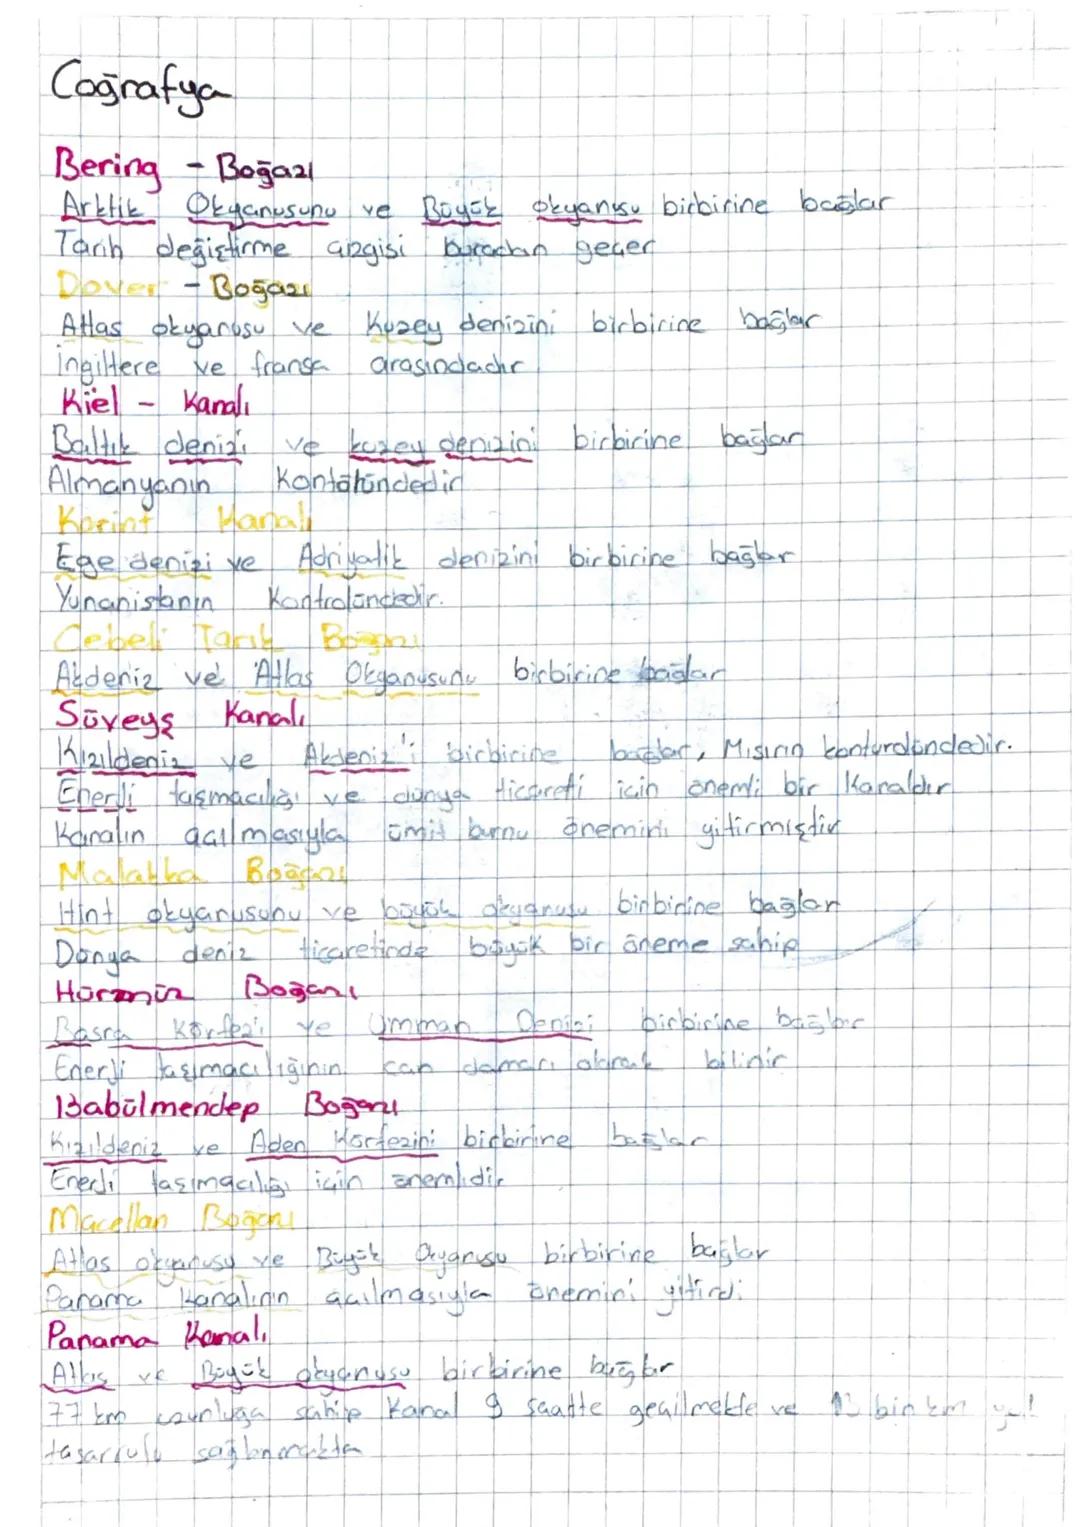 Coğrafya
Bering - Boğazı
Arktik Okyanusunu ve Büyük okyanusu birbirine bağlar
Tarih değiştirme çizgisi buradan geçer
Dover - Boğazı
Atlas okyanusu ve Kuzey denizini birbirine bağlar
İngiltere ve fransa arasındadır
Kiel - Kanalı
Baltık denizi ve kuzey denizini birbirine bağlar
Almanyanın Kontölündedir
Korint Kanalı
Ege denizi ve Adriyatik denizini birbirine bağlar
Yunanistanın Kontrolündedir.
Cebeli Tarık Boğazı
Akdeniz ve Atlas Okyanusunu birbirine bağlar
Süveyş Kanalı
Kızıldeniz ve Akdeniz'i birbirine bağlar, Mısırın konturolündedir.
Enerji taşımacılığı ve dünya ticareti için önemli bir Kanaldır
Kanalın açılmasıyla ümit burnu önemini yitirmiştir
Malakka Boğazı
Hint okyanusunu ve büyük okyanusu birbirine bağlar
Dünya deniz ticaretinde büyük bir öneme sahip
Hürmüz Boğazı
Basra Körfezi ve Umman Denizi birbirine bağlar
Enerji taşımacılığının can damarı olarak bilinir
Babülmendep Boğazı
Kızıldeniz ve Aden Körfezini birbirine bağlar
Enerji taşımacılığı için önemlidir
Macellan Boğazı
Atlas okyanusu ve Büyük Okyanusu birbirine bağlar
Panama Kanalının açılmasıyla önemini yitirdi
Panama Kanalı
Atlas ve Büyük okyanusu birbirine bağlar
77 km uzunluğa sahip Kanal 9 saatte geçilmekte ve 13 bin km yol
tasarrufu sağlanmakta